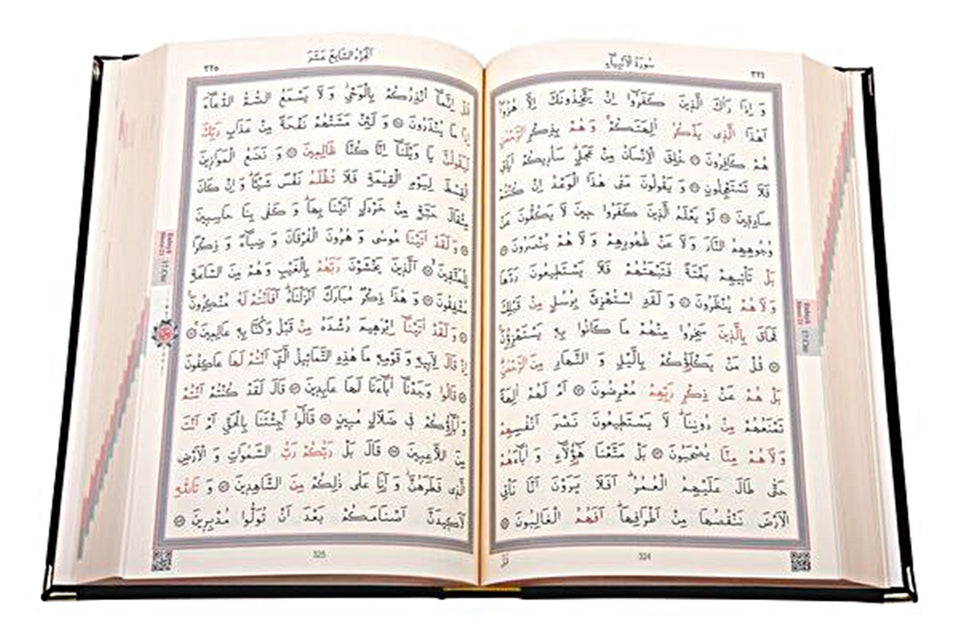 سُورَةُ الْاَنْبِيَاءِ
٣٢٤
وَ اِذَا رَاٰكَ الَّذِينَ كَفَرُوا اِنْ يَتَّخِذُونَكَ اِلَّا هُزُوًا
اَهٰذَا الَّذِي يَذْكُرُ اٰلِهَتَكُمْ وَ هُمْ بِذِكْرِ الرَّحْمٰنِ
هُمْ كَافِرُونَ ۞ خُلِقَ الْاِنْسَانُ مِنْ عَجَلٍ سَاُرِيكُمْ اٰيَاتِي
فَلَا تَسْتَعْجِلُونِ ۞ وَ يَقُولُونَ مَتٰى هٰذَا الْوَعْدُ اِنْ كُنْتُمْ
صَادِقِينَ ۞ لَوْ يَعْلَمُ الَّذِينَ كَفَرُوا حِينَ لَا يَكُفُّونَ عَنْ
وُجُوهِهِمُ النَّارَ وَ لَا عَنْ ظُهُورِهِمْ وَ لَا هُمْ يُنْصَرُونَ ۞
بَلْ تَأْتِيهِمْ بَغْتَةً فَتَبْهَتُهُمْ فَلَا يَسْتَطِيعُونَ رَدَّهَا
وَ لَا هُمْ يُنْظَرُونَ ۞ وَ لَقَدِ اسْتُهْزِئَ بِرُسُلٍ مِنْ قَبْلِكَ
فَحَاقَ بِالَّذِينَ سَخِرُوا مِنْهُمْ مَا كَانُوا بِهِ يَسْتَهْزِؤُنَ ۞
قُلْ مَنْ يَكْلَؤُكُمْ بِالَّيْلِ وَ النَّهَارِ مِنَ الرَّحْمٰنِ
بَلْ هُمْ عَنْ ذِكْرِ رَبِّهِمْ مُعْرِضُونَ ۞ اَمْ لَهُمْ اٰلِهَةٌ
تَمْنَعُهُمْ مِنْ دُونِنَا لَا يَسْتَطِيعُونَ نَصْرَ اَنْفُسِهِمْ
وَ لَا هُمْ مِنَّا يُصْحَبُونَ ۞ بَلْ مَتَّعْنَا هٰٓؤُلَاءِ وَ اٰبَاءَهُمْ
حَتّٰى طَالَ عَلَيْهِمُ الْعُمُرُ اَفَلَا يَرَوْنَ اَنَّا نَأْتِي
الْاَرْضَ نَنْقُصُهَا مِنْ اَطْرَافِهَا اَفَهُمُ الْغَالِبُونَ ۞
324
قُلْ
اَلْجُزْءُ السَّابِعَ عَشَرَ
٣٢٥
قُلْ اِنَّمَا اُنْذِرُكُمْ بِالْوَحْيِ وَ لَا يَسْمَعُ الصُّمُّ الدُّعَاءَ
اِذَا مَا يُنْذَرُونَ ۞ وَ لَئِنْ مَسَّتْهُمْ نَفْحَةٌ مِنْ عَذَابِ رَبِّكَ
لَيَقُولُنَّ يَا وَيْلَنَا اِنَّا كُنَّا ظَالِمِينَ ۞ وَ نَضَعُ الْمَوَازِينَ
الْقِسْطَ لِيَوْمِ الْقِيٰمَةِ فَلَا تُظْلَمُ نَفْسٌ شَيْئًا وَ اِنْ كَانَ
مِثْقَالَ حَبَّةٍ مِنْ خَرْدَلٍ اَتَيْنَا بِهَا وَ كَفٰى بِنَا حَاسِبِينَ
۞ وَ لَقَدْ اٰتَيْنَا مُوسٰى وَ هٰرُونَ الْفُرْقَانَ وَ ضِيَاءً وَ ذِكْرًا
لِلْمُتَّقِينَ ۞ اَلَّذِينَ يَخْشَوْنَ رَبَّهُمْ بِالْغَيْبِ وَ هُمْ مِنَ السَّاعَةِ
مُشْفِقُونَ ۞ وَ هٰذَا ذِكْرٌ مُبَارَكٌ اَنْزَلْنَاهُ اَفَاَنْتُمْ لَهُ مُنْكِرُونَ
۞ وَ لَقَدْ اٰتَيْنَا اِبْرٰهِيمَ رُشْدَهُ مِنْ قَبْلُ وَ كُنَّا بِهِ عَالِمِينَ ۞
اِذْ قَالَ لِاَبِيهِ وَ قَوْمِهِ مَا هٰذِهِ التَّمَاثِيلُ الَّتِي اَنْتُمْ لَهَا عَاكِفُونَ
۞ قَالُوا وَجَدْنَا اٰبَاءَنَا لَهَا عَابِدِينَ ۞ قَالَ لَقَدْ كُنْتُمْ اَنْتُمْ
وَ اٰبَاؤُكُمْ فِي ضَلَالٍ مُبِينٍ ۞ قَالُوا اَجِئْتَنَا بِالْحَقِّ اَمْ اَنْتَ
مِنَ اللَّاعِبِينَ ۞ قَالَ بَلْ رَبُّكُمْ رَبُّ السَّمٰوَاتِ وَ الْاَرْضِ
الَّذِي فَطَرَهُنَّ وَ اَنَا عَلٰى ذٰلِكُمْ مِنَ الشَّاهِدِينَ ۞ وَ تَاللّٰهِ
لَاَكِيدَنَّ اَصْنَامَكُمْ بَعْدَ اَنْ تُوَلُّوا مُدْبِرِينَ ۞
325